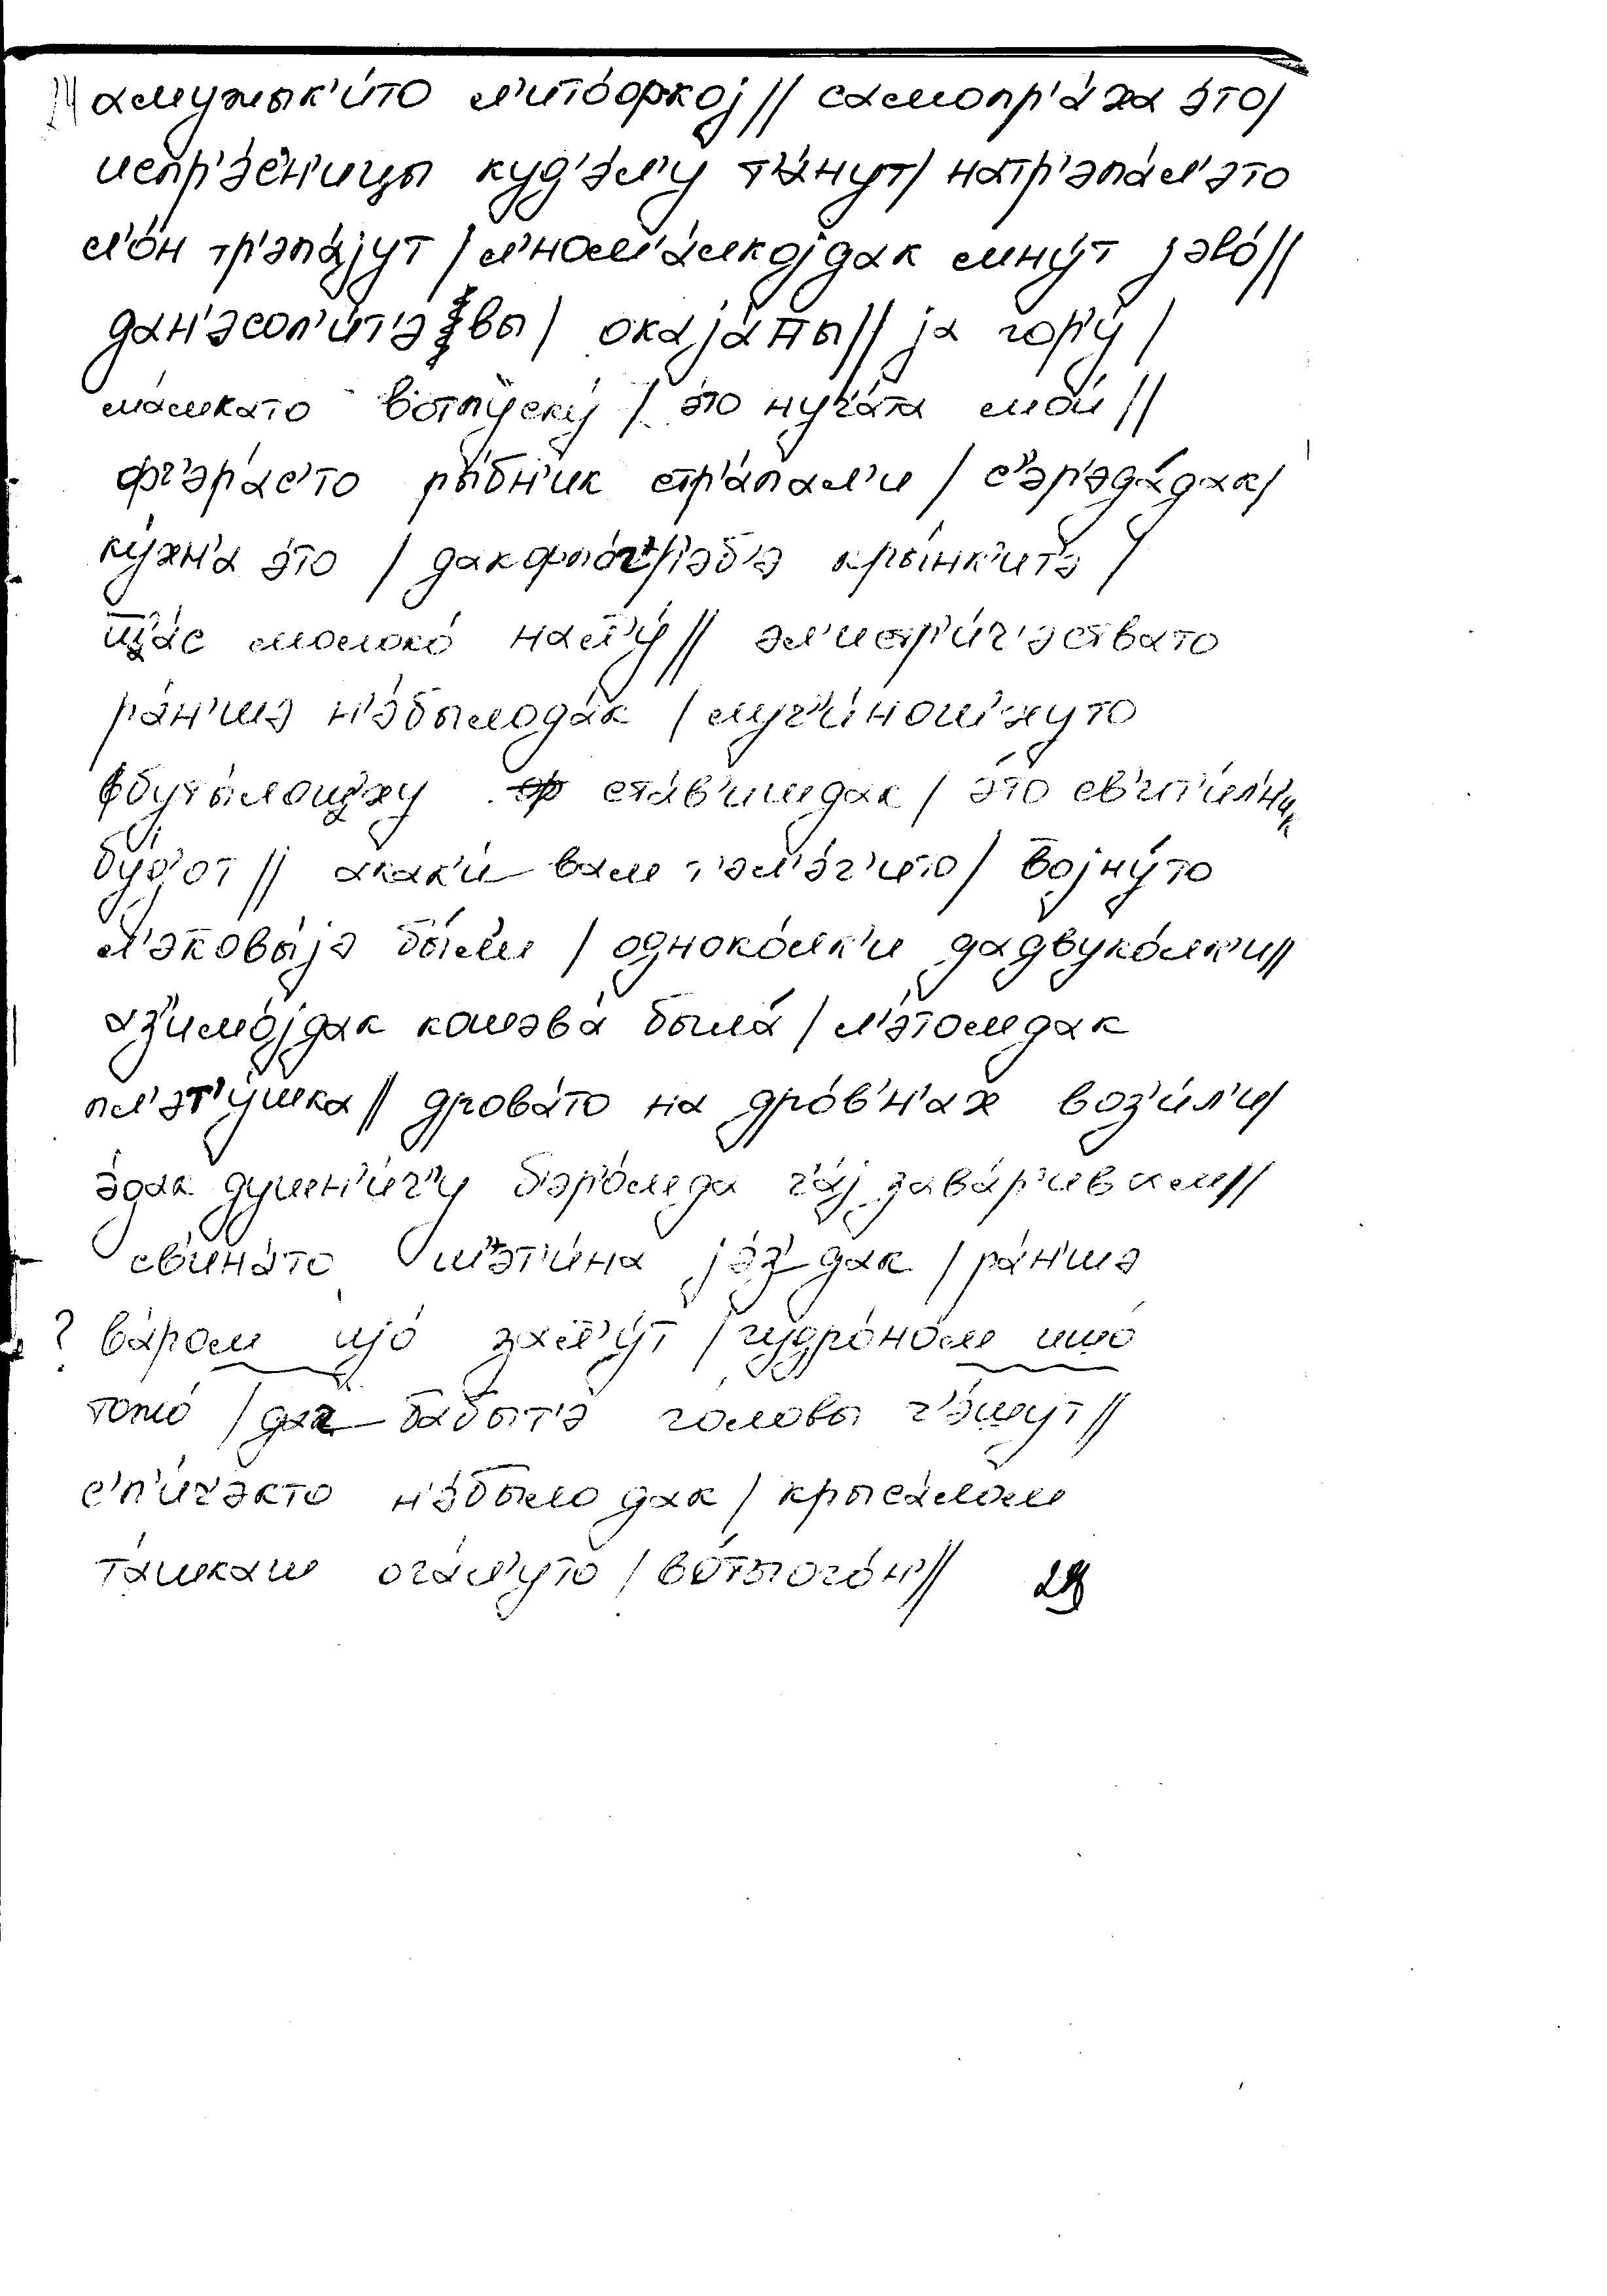 амужык'и́то л'ито́фкој // самопр'а́ха э́то /
испр'э́с'н'ицы куд'э́л'у т'а́нут / натр'эпа́л'это
л'о́н тр'эпа́јут / л'ном'а́лкојдак мну́т јэво́ //
дан'эсол'и́т'э вы / окаја́ны // ја гор'у́ /
ма́мкато вотпуску́ / э́то нуч'а́та мои́ //
фч'эра́с'то ры́бн'ик стр'а́пал'и / с'эр'эда́дак /
ку́хн'а э́то / кры́нк'ит'э /
молоко́ нал'у́ // эл'истр'и́ч'эствато
ра́н'шэ н'э́былода́к / луч'и́ношкуто
буты́лошку ста́в'ишдак / э́то св'ит'и́л'н'ик
бу́д'от // акак'и́ вам т'эл'э́г'ито / војну́то
л'экбвы́јэ бы́л'и / одноко́лк'и дадвуко́лк'и //
аз'имо́јдак кошэва́ была́ / л'э́томдак
пл'эт'у́шка // дрова́то на дро́в'н'ах воз'и́л'и /
э́дак душн'и́ч'у б'эр'о́мда ч'а́ј зава́р'ивам //
св'ин'а́то ш'эт'и́на јэ́з'дак / ра́н'шэ
? ва́ром ијо́ зал'у́т / гудро́ном ишо́
тожо́ / даг ба́быт'э го́ловы ч'э́шут //
с'п'и́ч'экто н'э́было дак / крыса́лом
та́шкаш ога́л'уто / во́тыого́н' //
28